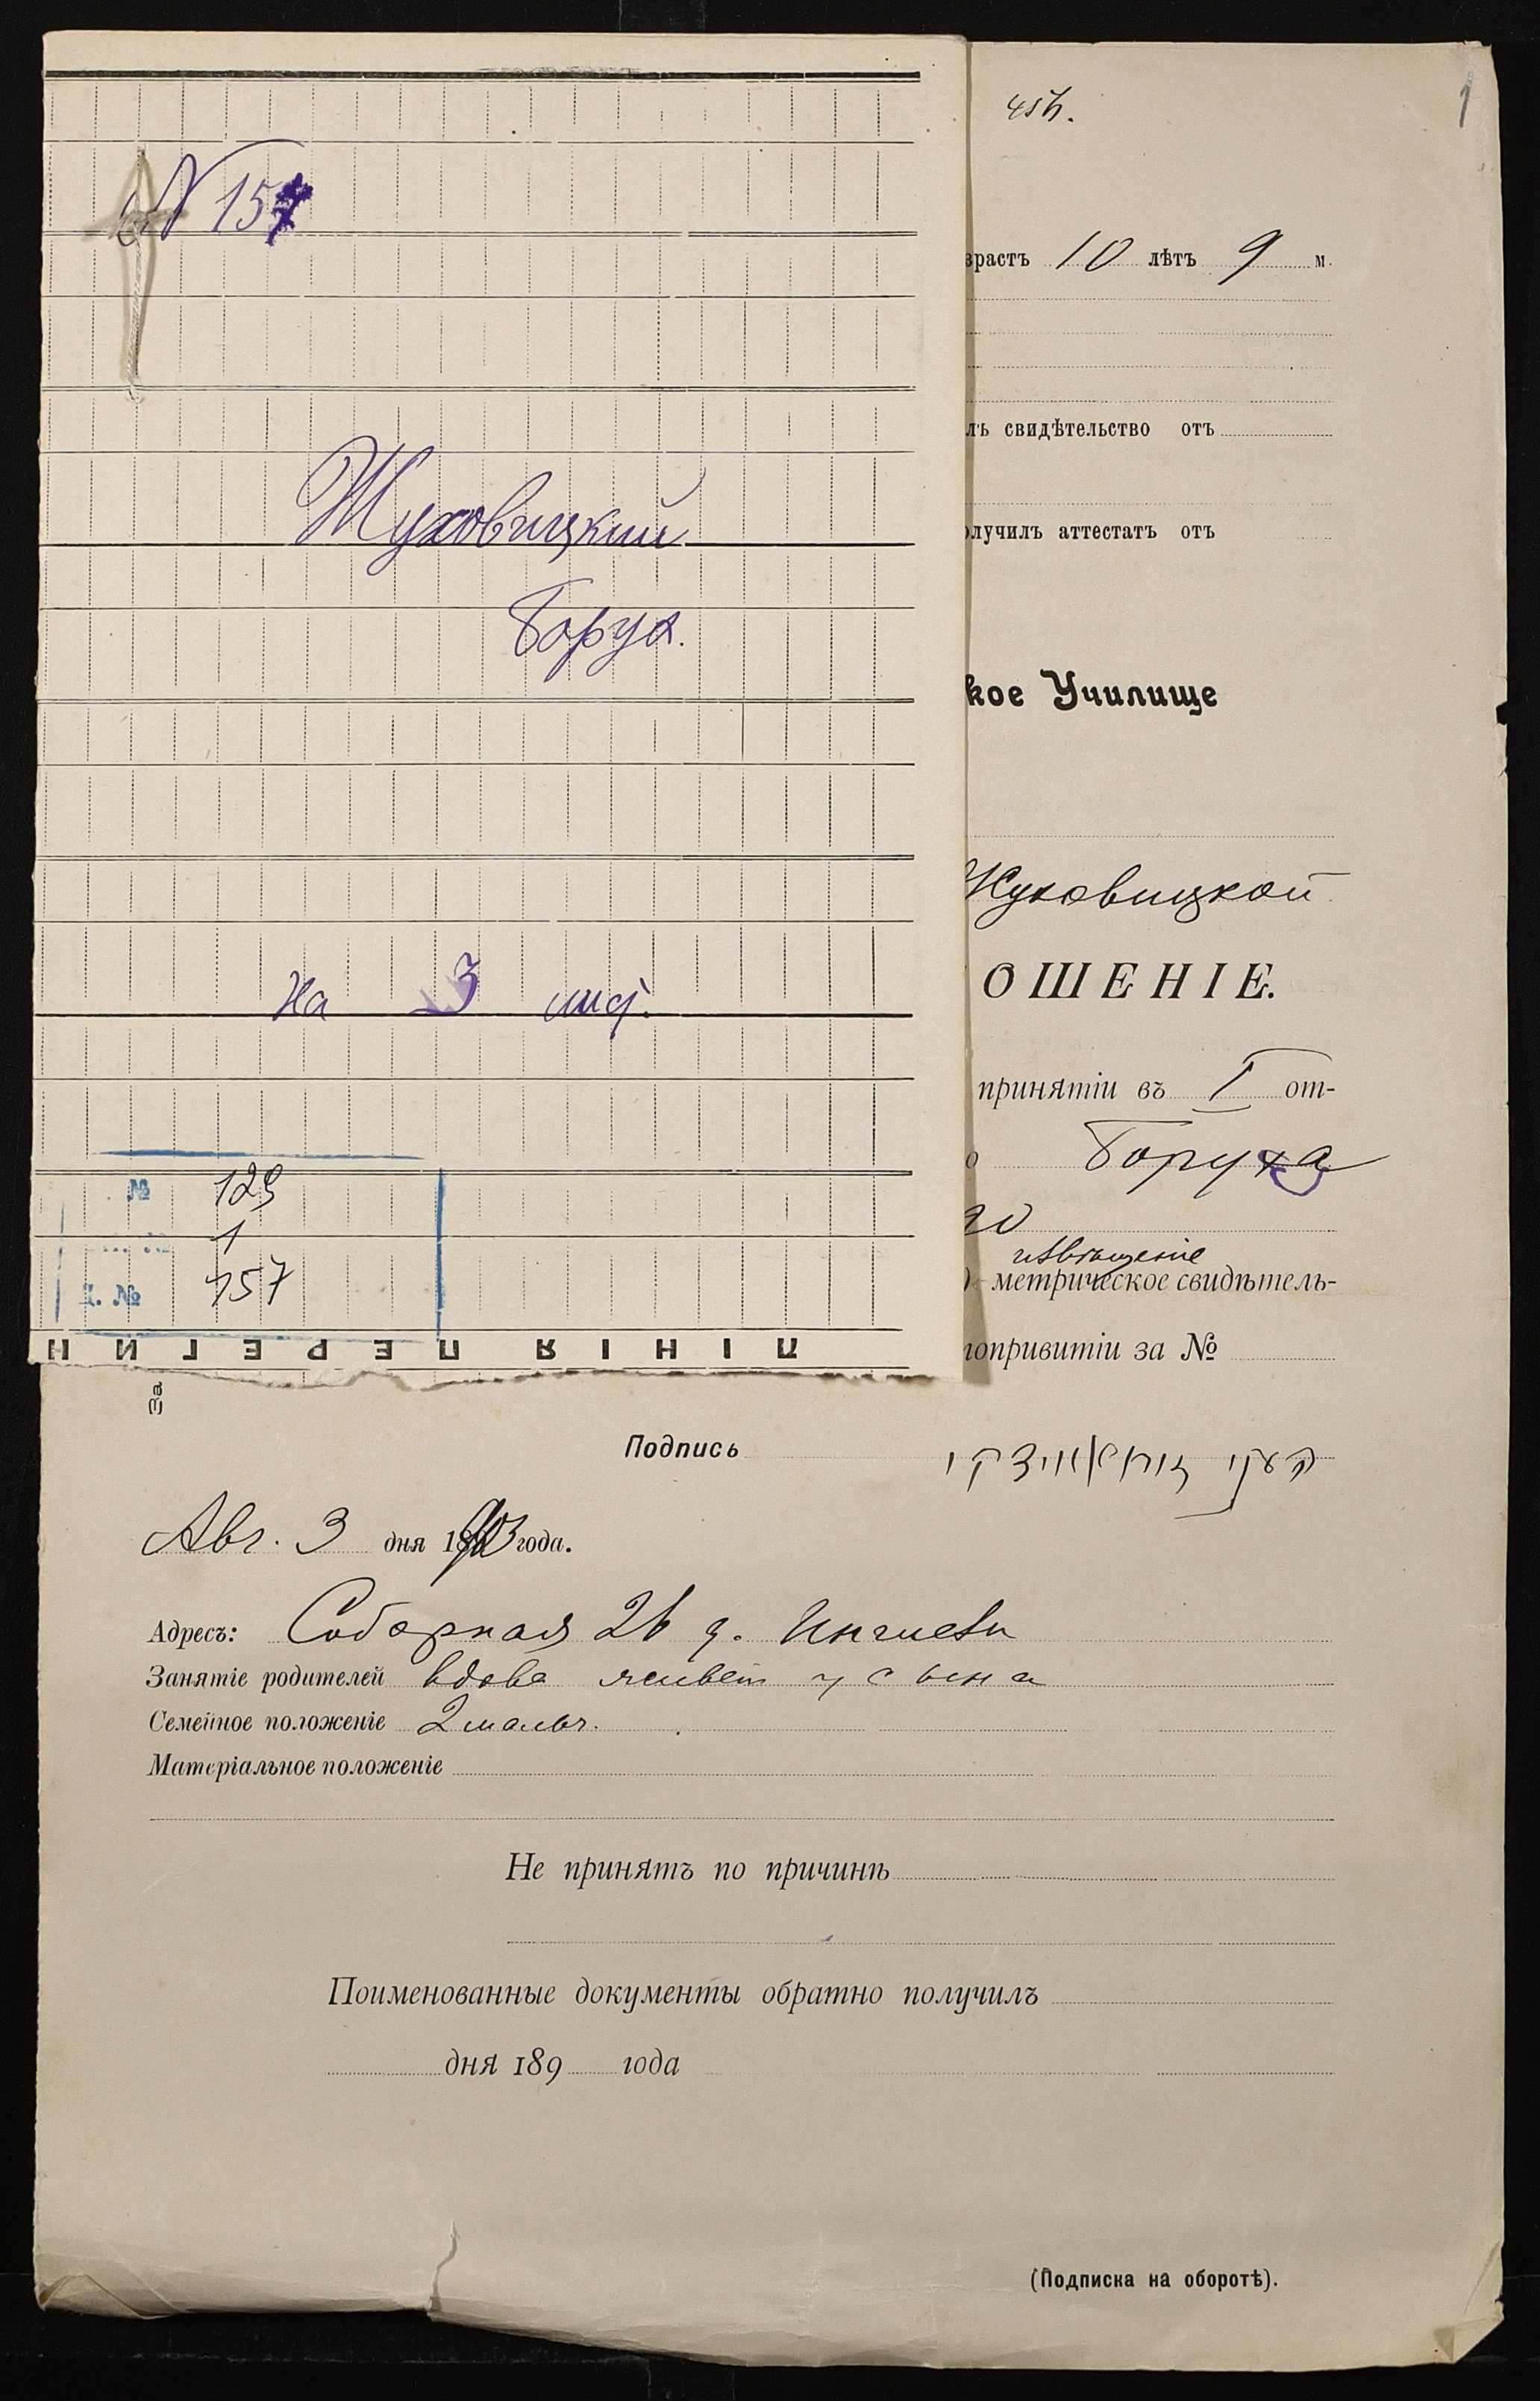 № 157
Жуховицкий
Борух.
На 3 лис.
№ 129
1
№ 157
Й И Л Г Е Р Е П Я І Н І П
45 к.
1
зрастъ 10 лѣтъ 9 м.
лъ свидѣтельство отъ
олучилъ аттестатъ отъ
кое Училище
Жуховицкой
ОШЕНІЕ.
принятіи въ I от-
Боруха
метрическое свидѣтель-
попривитіи за №
Подпись
Авг. 3 дня 1903 года.
Адресъ: Соборная 26 д.
Занятіе родителей вдова живет у сына
Семейное положеніе 2 мальч.
Матеріальное положеніе
Не принятъ по причинѣ
Поименованные документы обратно получилъ
дня 189 года
(Подписка на оборотѣ).